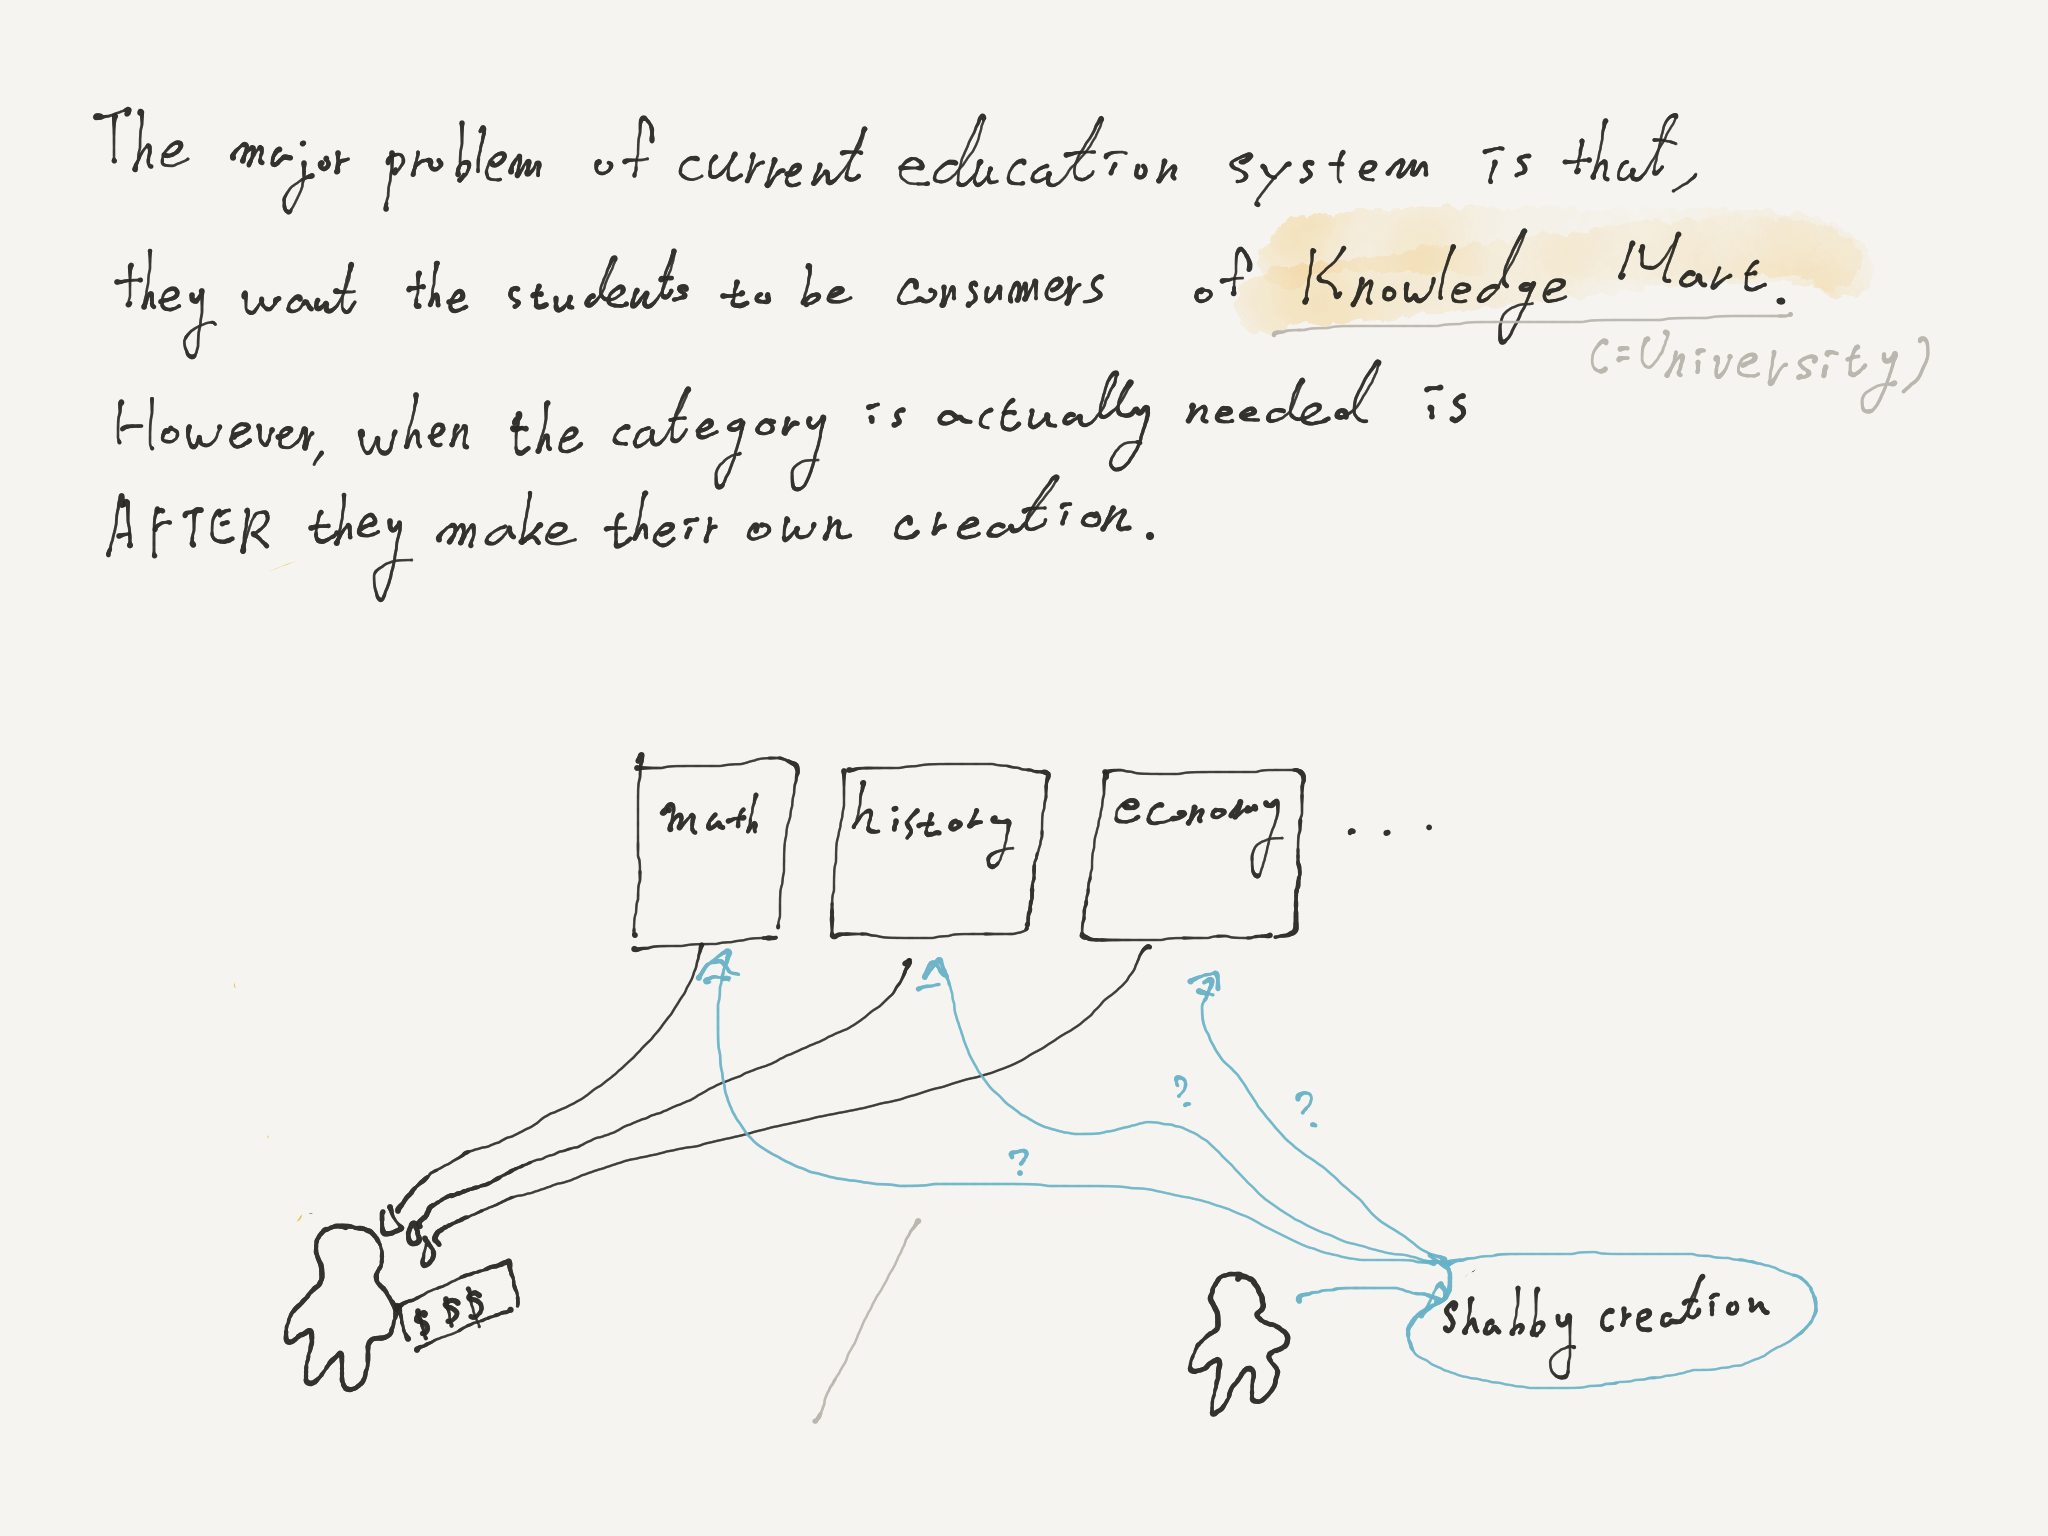 The major problem of current education system is that,
they want the students to be consumers of Knowledge Mart.
(=University)
However, when the category is actually needed is
AFTER they make their own creation.
math
history
economy
. . . .
?
?
?
$$$
shabby creation